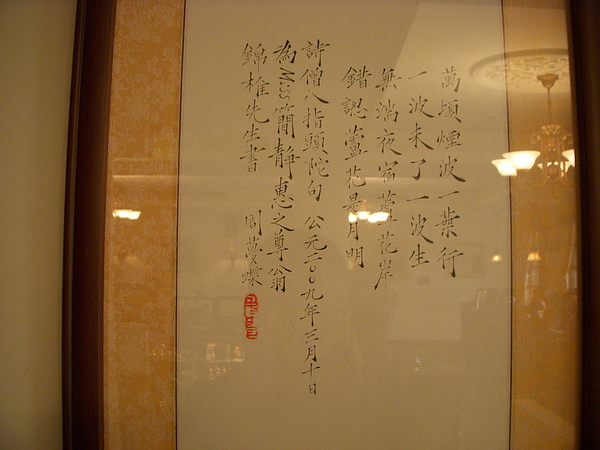 萬頃煙波一葉行
一波未了一波生
無端夜宿蘆花岸
錯認蘆花是月明
詩僧八指頭陀句 公元二〇〇九年三月十日
為Miss簡靜惠之尊翁
錦椎先生書 周夢蝶